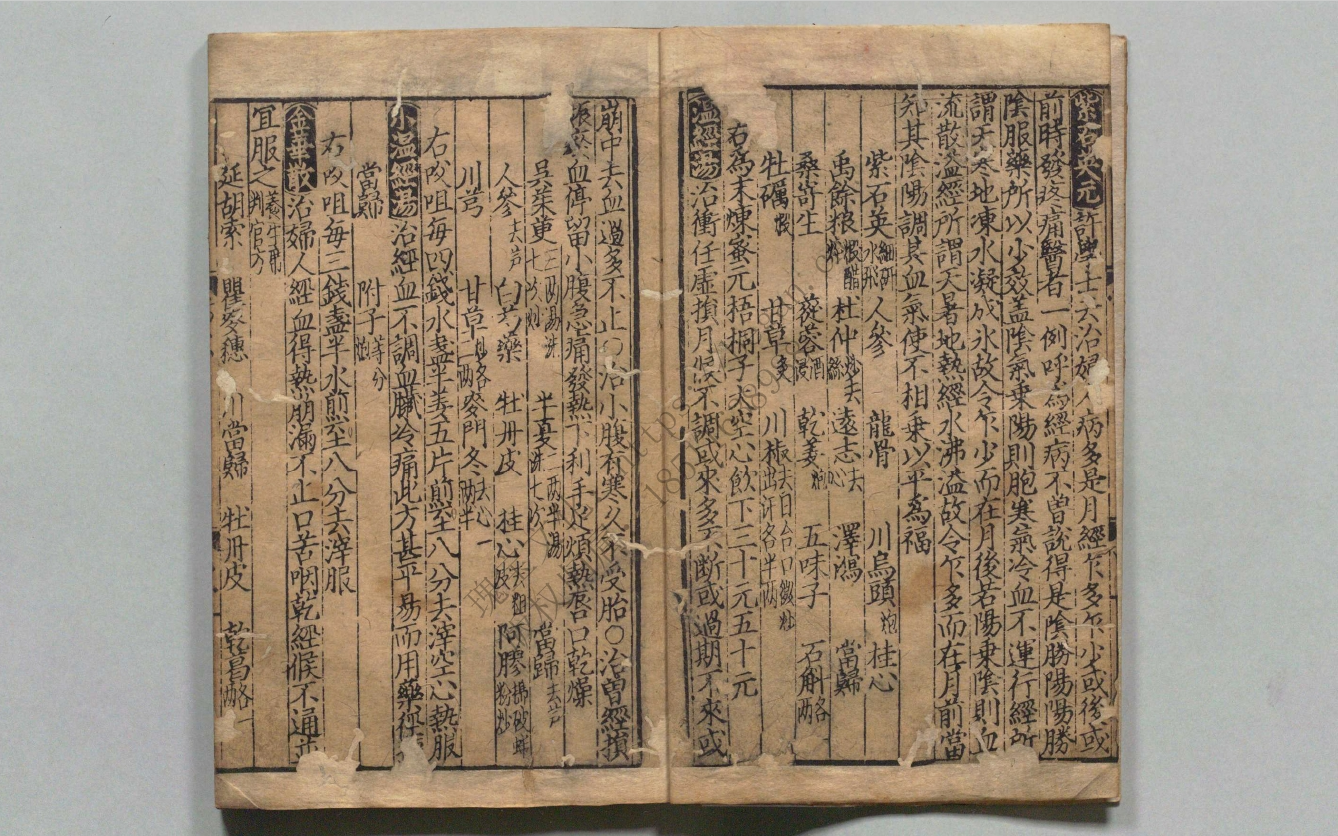 紫石英元許學士云治婦人病多是月經乍多乍少或後或
前時發疼痛醫者一例呼爲經病不曾說得是陰勝陽陽勝
陰服藥所以少效蓋陰氣乘陽則胞寒氣冷血不運行經所
謂天寒地凍水凝成氷故令乍少而在月後若陽乘陰則血
流散溢經所謂天暑地熱經水沸溢故令乍多而在月前當
知其陰陽調其血氣使不相乘以平爲福
紫石英細研水飛 人參 龍骨 川烏頭炮 桂心
禹餘粮煅醋淬 杜仲炒去絲 遠志去心 澤瀉 當歸
桑寄生 蓯蓉酒浸 乾姜炮 五味子 石斛各一兩
牡礪煅 甘草炙 川椒去目合口微炒出汗各半兩
右為末煉蜜元梧桐子大空心飲下三十元五十元
溫經湯治衝任虛損月候不調或來多不斷或過期不來或
崩中去血過多不止〇治小腹有寒久不受胎〇治曾經損
娠瘀血停留小腹急痛發熱下利手足煩熱唇口乾燥
吳茱萸三兩湯洗七次炒 半夏二兩半湯洗七次 當歸去芦
人參去芦 白芍藥 牡丹皮 桂心去粗皮 阿膠搗碎蛤粉炒
川芎 甘草炒各二兩 麥門冬去心一兩半
右㕮咀每四錢水盞半姜五片煎至八分去滓空心熱服
小溫經湯治經血不調血臟冷痛此方甚平易而用藥徑
當歸 附子炮等分
右㕮咀每三錢盞半水煎至八分去滓服
金華散治婦人經血得熱崩漏不止口苦咽乾經候不通並
宜服之
延胡索 瞿麥穗 川當歸 牡丹皮 乾葛各一兩